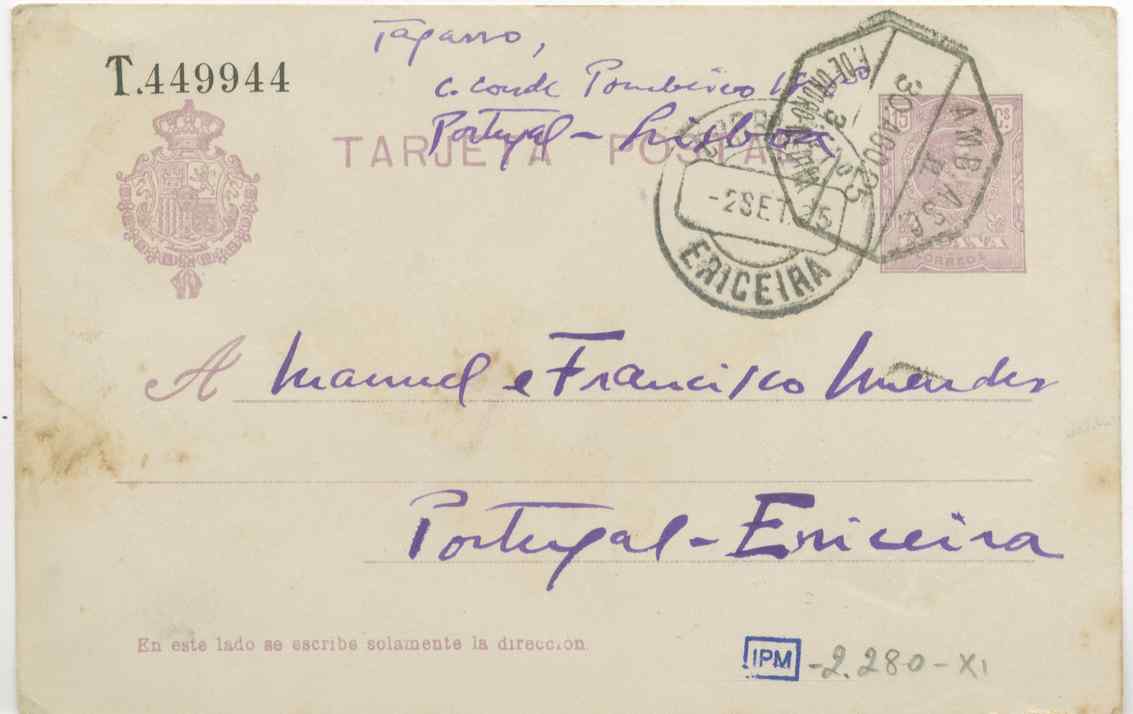 T.449944
Tagarro,
C. Conde Pombeiro
Portugal - Lisboa
TARJETA POSTAL
15 Cs
ESPAÑA
CORREOS
AMB. ASC
30 AGO 25
F. DE OROÑO
-2 SET. 25
ERICEIRA
A Manuel e Francisco Mendes
Portugal - Ericeira
En este lado se escribe solamente la dirección.
IPM -2.280-XI